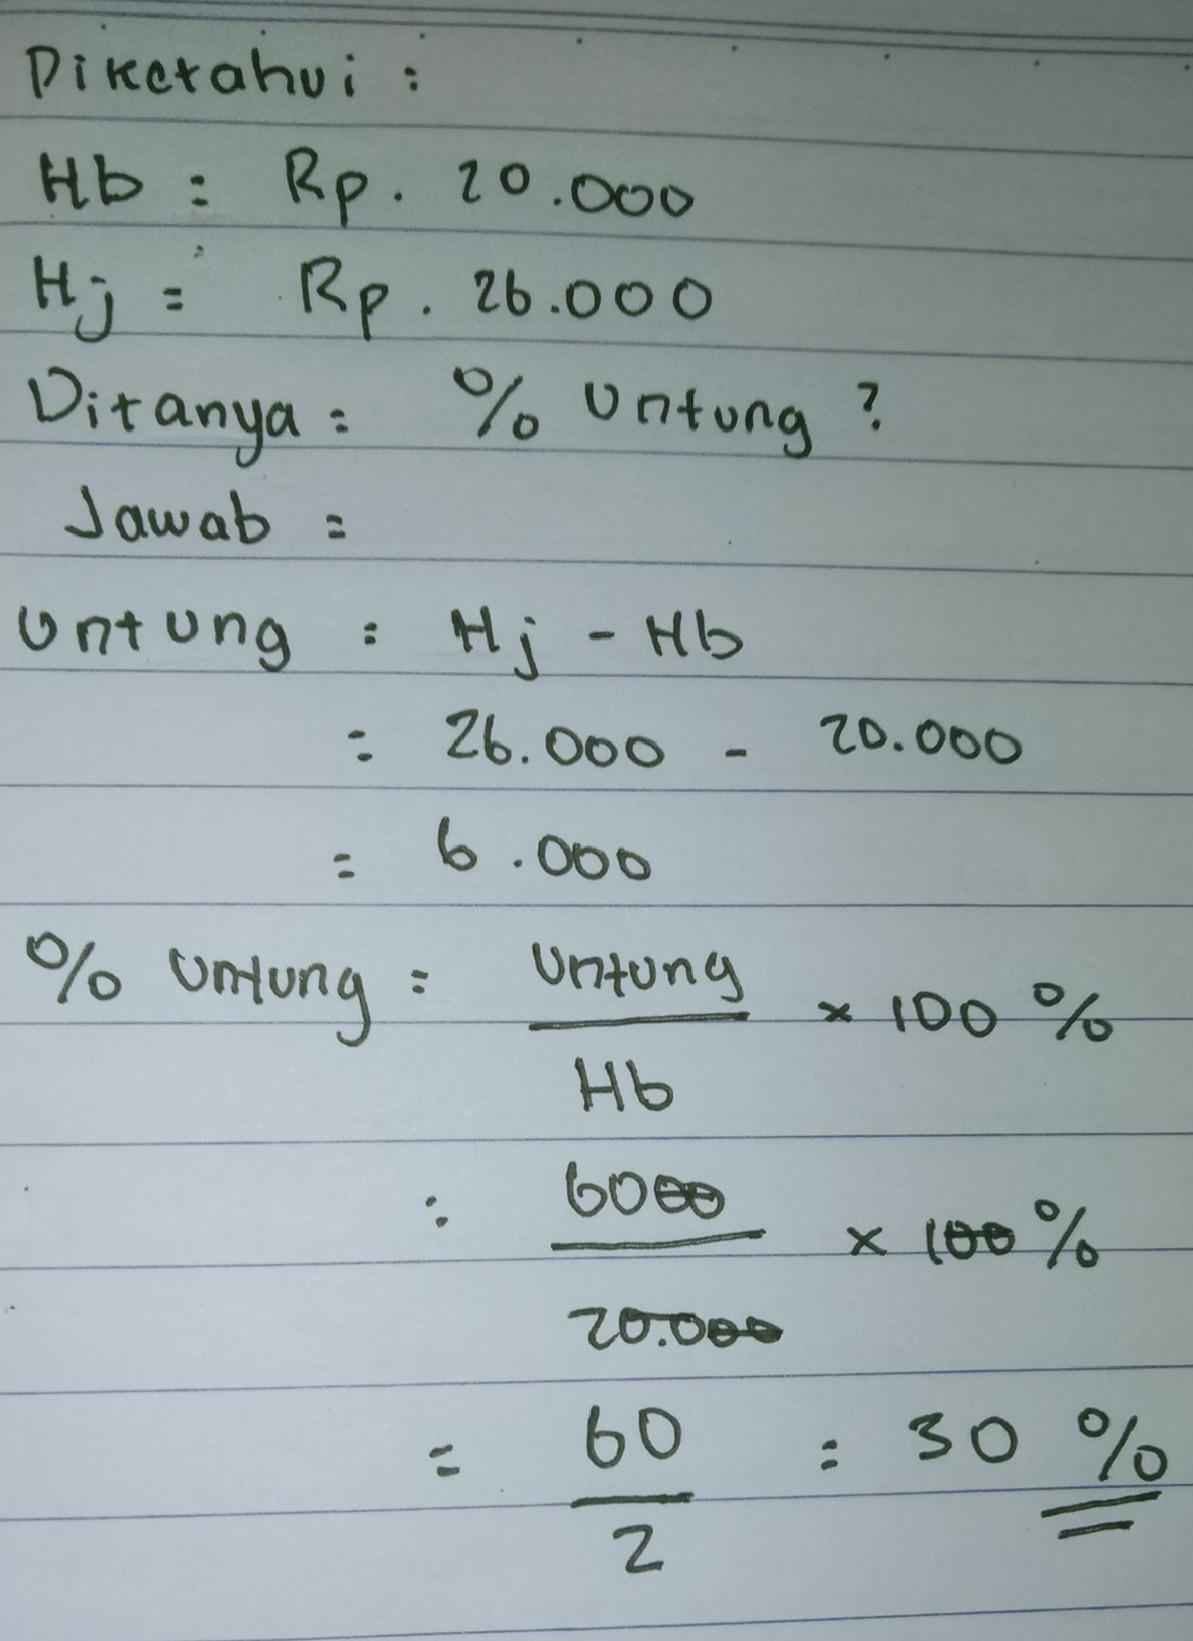 Diketahui :
Hb = Rp. 20.000
Hj = Rp. 26.000
Ditanya = % Untung ?
Jawab =
Untung = Hj - Hb
= 26.000 - 20.000
= 6.000
% Untung = Untung
x 100 %
Hb
= 6000
x 100 %
20.000
= 60 = 30 %
2